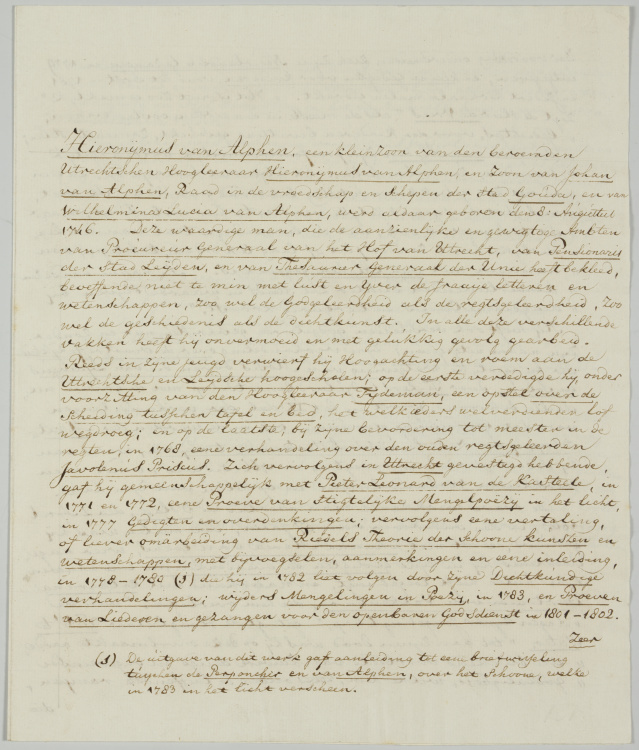 Hieronymus van Alphen, een kleinzoon van den beroemden
Utrechtschen Hoogleeraar Hieronymus van Alphen, en zoon van Johan
van Alphen, Raad in de vroedschap en Schepen der Stad Gouda, en van
Wilhelmina Lucia van Alphen, werd aldaar geboren den 8: Augustus
1746. Deze waardige man, die de aanzienlyke en gewigtige Ambten
van Procureur Generaal van het Hof van Utrecht, van Pensionaris
der Stad Leyden, en van Thesaurier Generaal der Unie heeft bekleed,
beoeffende niet te min met lust en yver de fraeije letteren en
wetenschappen, zoo wel de Godgeleerdheid als de regtsgeleerdheid, zoo
wel de geschiedenis als de dichtkunst. In alle deze verschillende
vakken heeft hy onvermoeid en met gelukkig gevolg gearbeid.
Reeds in zyne jeugd verwierf hy Hoogachting en roem aan de
Utrechtsche en Leydsche hoogescholen; op de eerste verdedigde hy, onder
voorzitting van den Hoogleeraar Tydeman, een opstel over de
Scheiding tusschen tafel en bed, het welk ieders welverdienden lof
wegdroeg; en op de laatste, by zyne bevordering tot meester in de
regten, in 1768, eene verhandeling over den ouden regtsgeleerden
Javolenus Priscus. Zich vervolgens in Utrecht gevestigd hebbende,
gaf hy gemeenschappelyk met Pieter Leonard van de Kasteele, in
1771 en 1772, eene Proeve van Stigtelyke Mengelpoëzy in het licht,
in 1777 Gedigten en overdenkingen; vervolgens eene vertaling,
of liever omwerking van Riedels Theorie der Schoone kunsten en
wetenschappen, met byvoegselen, aanmerkingen en eene inleiding,
in 1778 – 1780 (1) die hy in 1782 liet volgen door zyne Dichtkundige
verhandelingen; wyders Mengelingen in Poëzy, in 1783, en Proeven
van Liederen en gezangen voor den openbaren Godsdienst in 1801 – 1802.
Zeer
(1) De uitgave van dit werk gaf aanleiding tot eene briefwisseling
tusschen de Perponcher en van Alphen, over het Schoone, welke
in 1783 in het licht verscheen.